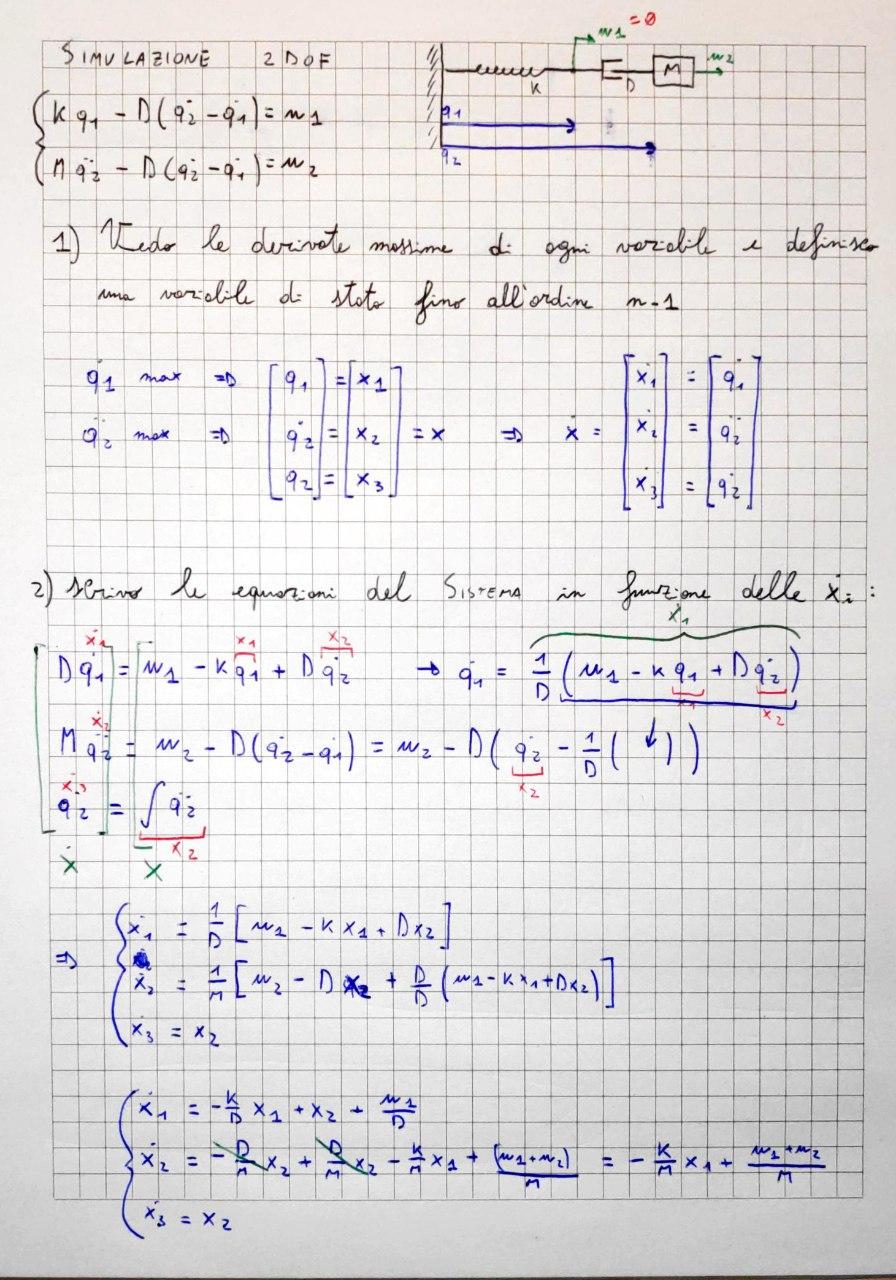 SIMULAZIONE 2 DOF
u1 = 0
u2
K D M
q1
q2
K q1 - D(q̇2 - q̇1) = u1
M q̈2 - D(q̇2 - q̇1) = u2
1) Vedo le derivate massime di ogni variabile e definisco
una variabile di stato fino all'ordine n-1
q̇1 max ⇒ [q1 = [x1]
q̈2 max ⇒ [q̇2 = x2] = x ⇒ ẋ =
[q2 = x3]
[ẋ1] = [q̇1]
[ẋ2] = [q̈2]
[ẋ3] = [q̇2]
2) scrivo le equazioni del SISTEMA in funzione delle ẋi :
ẋ1 x1 x2 ẋ1
D q̇1 = u1 - K q1 + D q̇2 → q̇1 = 1/D (u1 - K q1 + D q̇2)
x1 x2
ẋ2
M q̈2 = u2 - D(q̇2 - q̇1) = u2 - D(q̇2 - 1/D (↓))
x2
ẋ3
q̇2 = ∫ q̈2
x2
ẋ X
⇒ ẋ1 = 1/D [u1 - K x1 + D x2]
ẋ2 = 1/M [u2 - D x2 + D/D (u1 - K x1 + D x2)]
ẋ3 = x2
ẋ1 = -K/D x1 + x2 + u1/D
ẋ2 = -D/M x2 + D/M x2 - K/M x1 + (u1+u2)/M = - K/M x1 + u1+u2/M
ẋ3 = x2